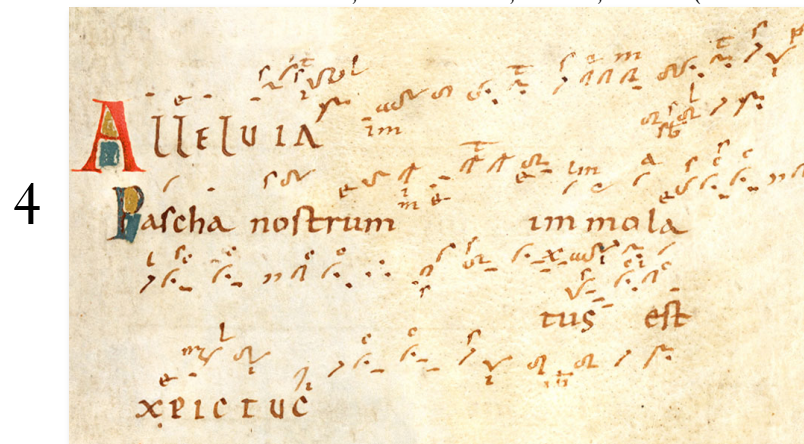 4
ALLELUIA
Pascha nostrum immola
tus est
XPICTUC